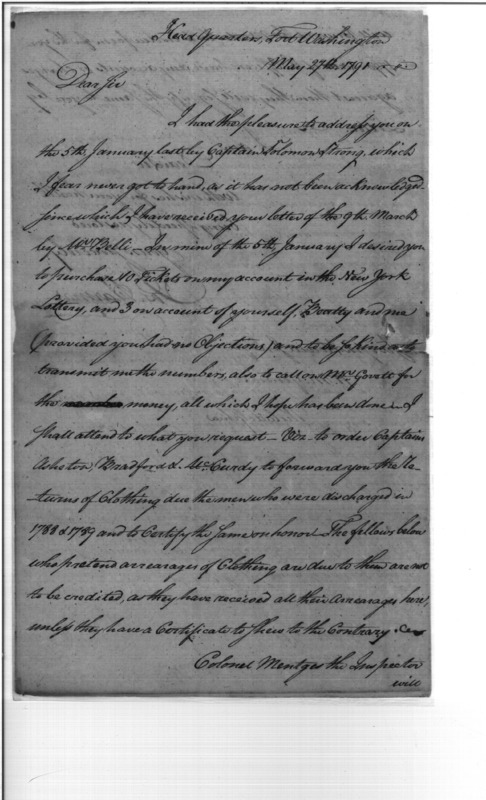 Head Quarters, Fort Washington
May 27th 1791
Dear Sir
I had the pleasure to address you on
the 5th January last by Captain Solomon Strong, which
I fear never got to hand, as it has not been acknowledged.
since which I have received your letter of the 9th March
by Mr Belli. In mine of the 5th January I desired you
to purchase 10 Tickets on my account in the New York
Lottery, and 3 on account of yourself, Beatty and me
(provided you had no Objections) and to be so kind as to
transmit me the numbers, also to call on Mr Govett for
the money, all which I hope has been done — I
shall attend to what you request — Viz — to order Captains
Ashton, Bradford & McCurdy to forward you the Re-
turns of Clothing due the men who were discharged in
1788 & 1789 and to Certify the same on honor — The fellows below
who pretend arrearages of Clothing are due to them are not
to be credited, as they have received all their Arrearages here,
unless they have a Certificate to shew to the Contrary.
Colonel Mentges the Inspector
will